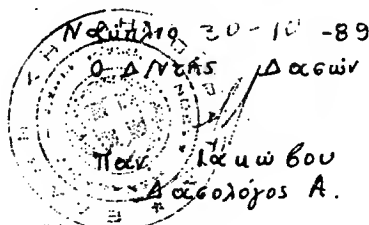 Ναύπλιο 20-10-89
Ο Δ/ντής Δασών
Παν. Ιακώβου
Δασολόγος Α.